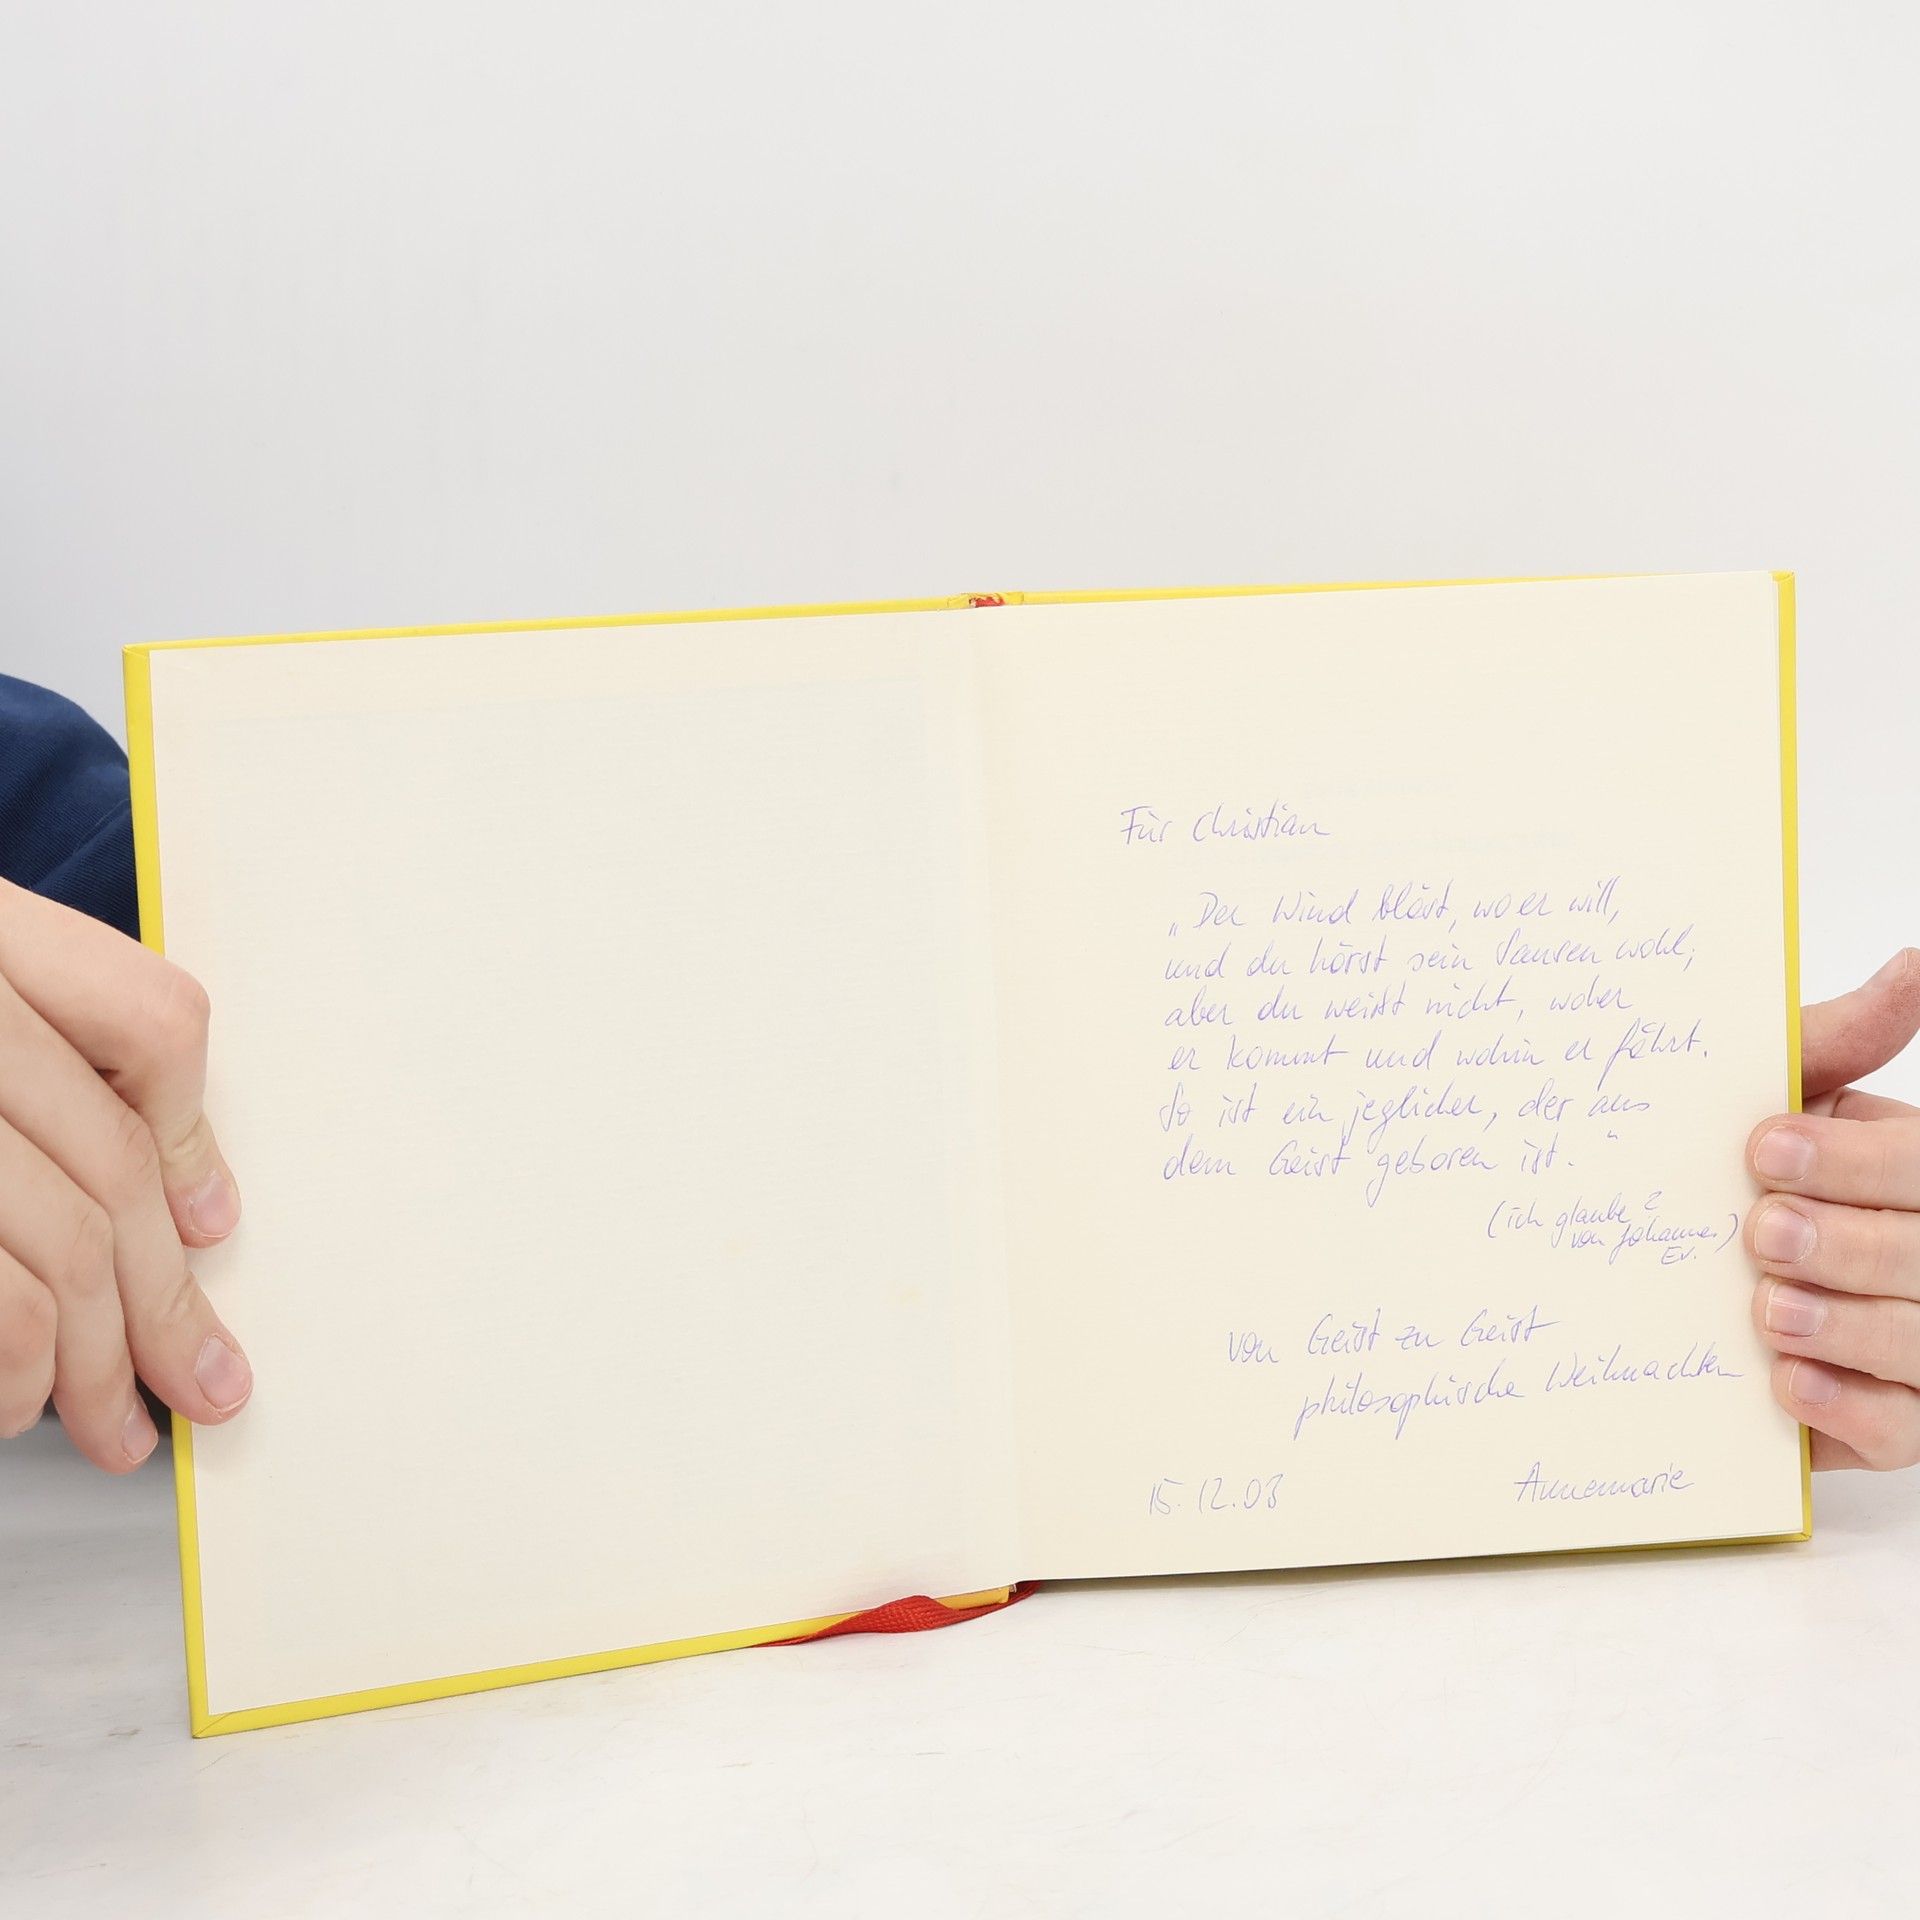 Für Christian
„Der Wind bläst, wo er will,
und du hörst sein Sausen wohl;
aber du weißt nicht, woher
er kommt und wohin er fährt.
So ist ein jeglicher, der aus
dem Geist geboren ist.“
(ich glaube
von Johannes)
Ev.
von Geist zu Geist
philosophische Weihnachten
15.12.03
Annemarie